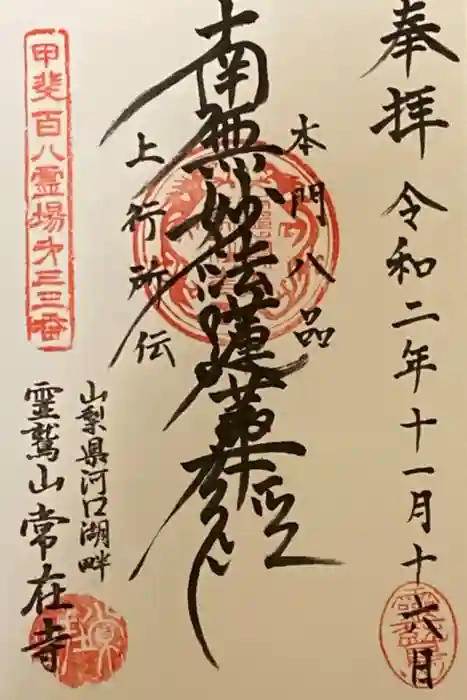 奉拝
令和二年十一月十六日
本門八品
南無妙法蓮華経
上行所伝
甲斐百八霊場第三三番
山梨県河口湖畔
霊鷲山常在寺